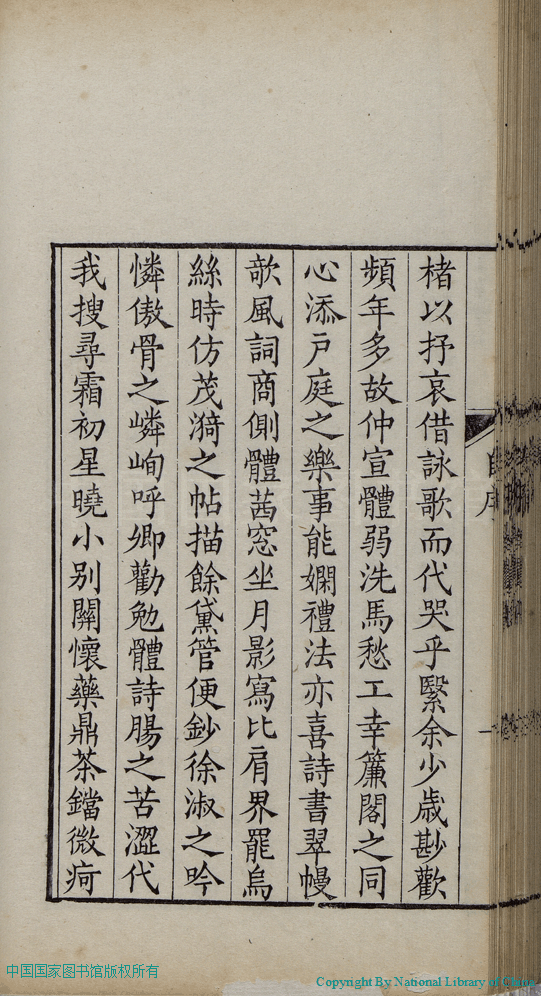 楮以抒哀借詠歌而代哭乎緊余少歲尠歡
頻年多故仲宣體弱洗馬愁工幸簾閣之同
心添戸庭之樂事能嫻禮法亦喜詩書翠幔
歌風詞商側體茜窓坐月影寫比肩界罷烏
絲時仿茂漪之帖描餘黛管便鈔徐淑之吟
憐傲骨之嶙峋呼卿勸勉體詩腸之苦澀代
我搜尋霜初星曉小别關懷藥鼎茶鐺微疴
自序
一
中国国家图书馆版权所有
Copyright By National Library of China